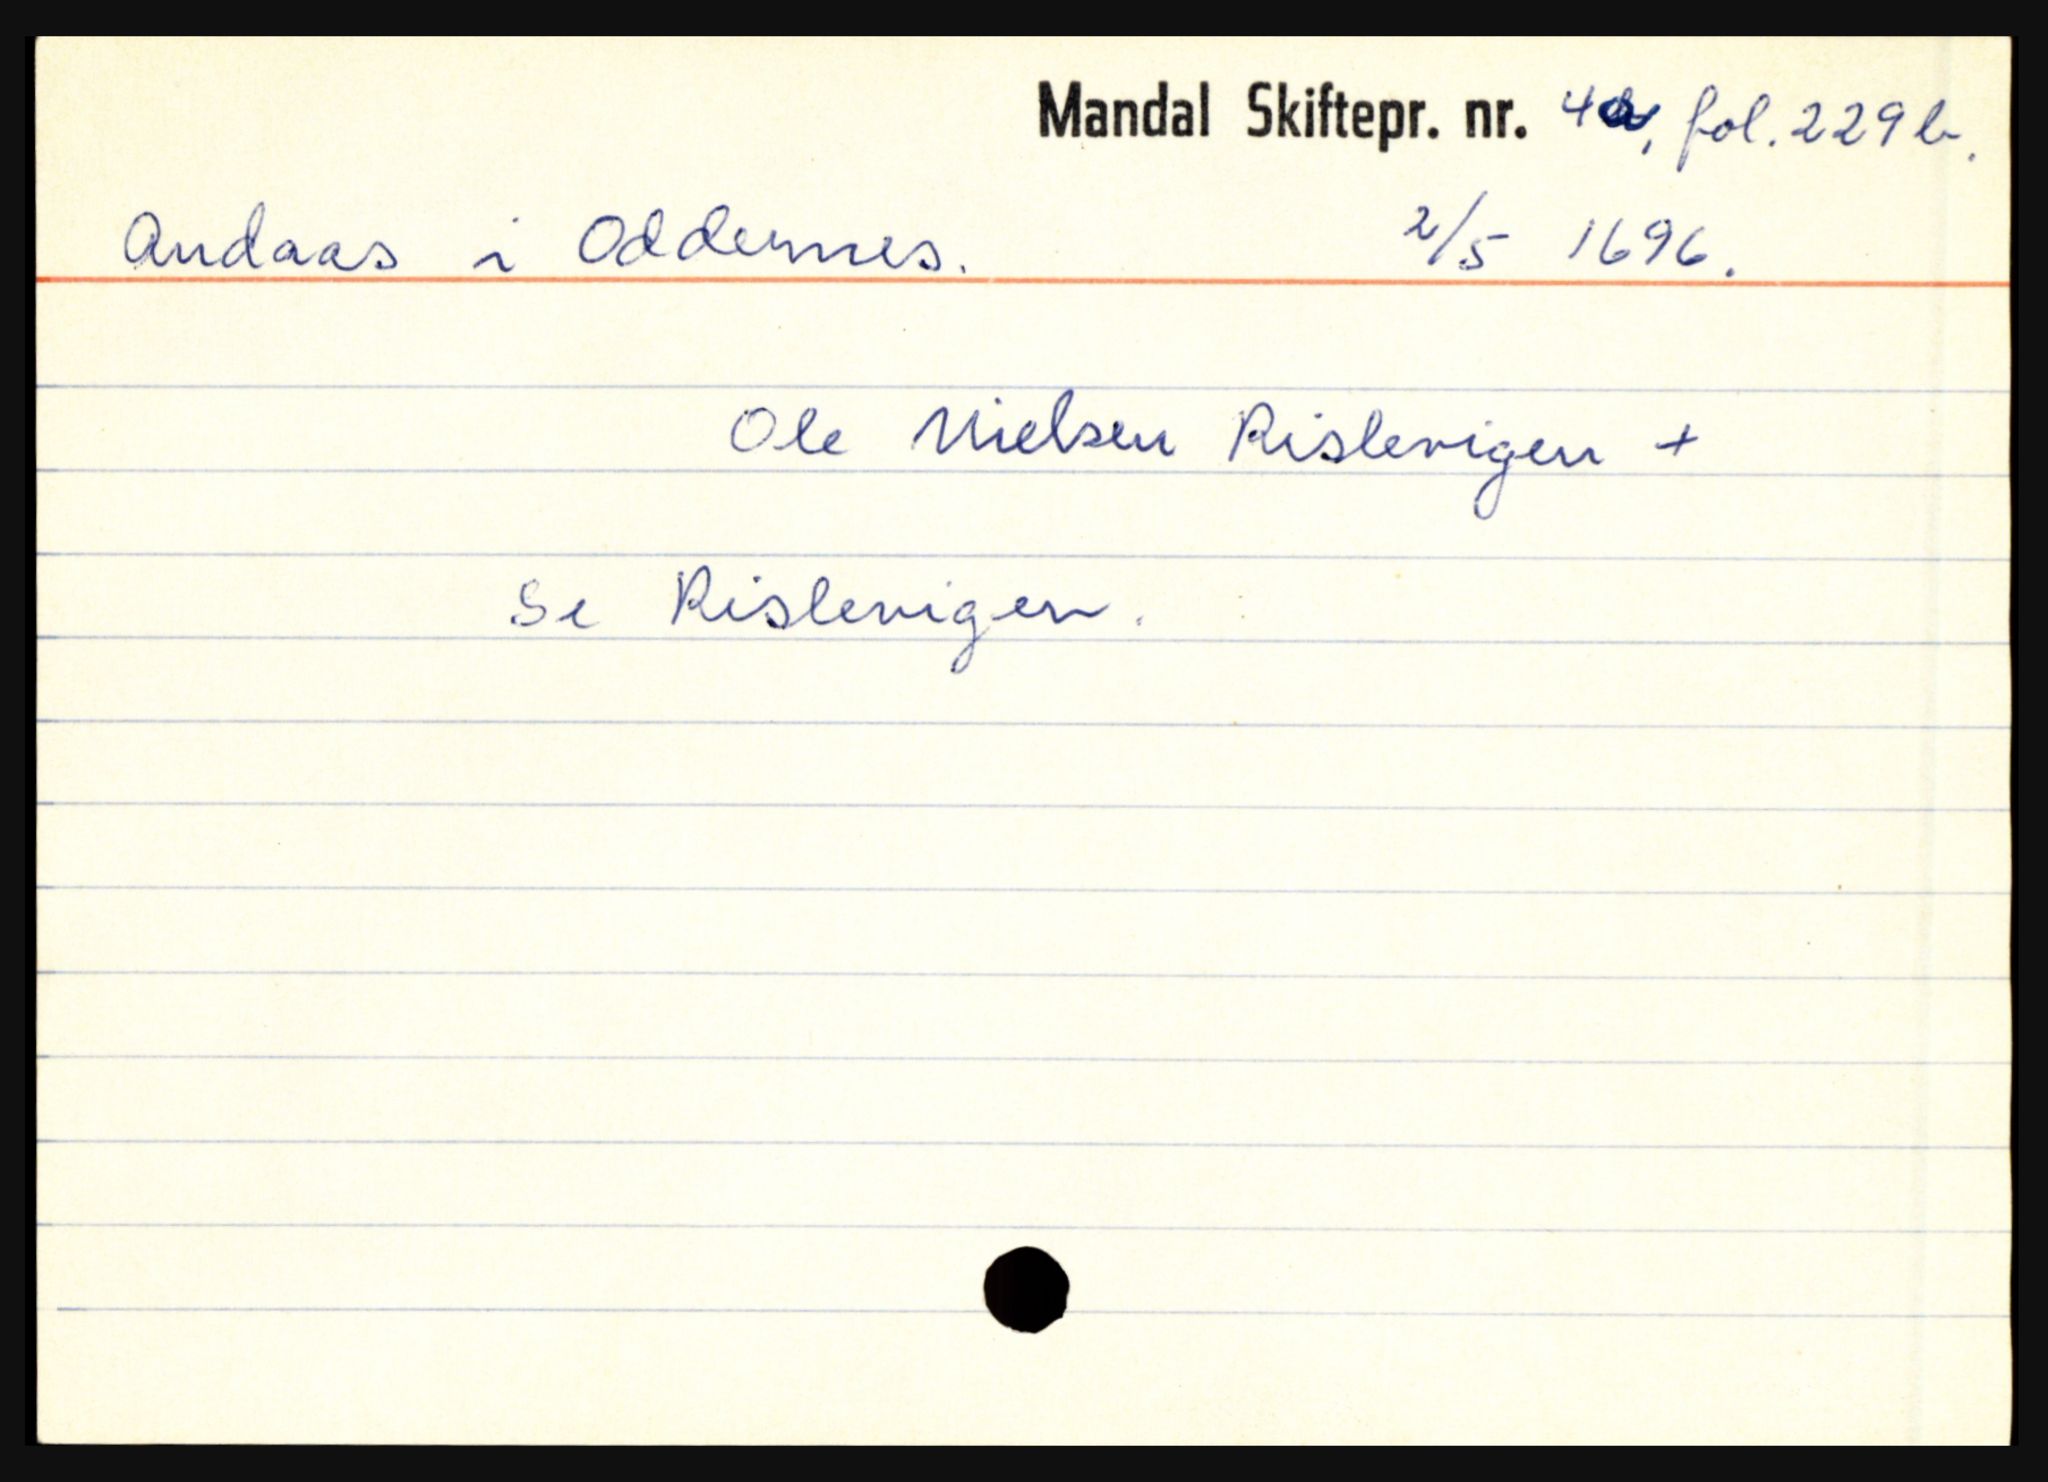 Mandal Skiftepr. nr. 4a, fol. 229b.
Andaas i Oddernes. 2/5 1696.
Ole Nielsen Rislevigen +
Se Rislevigen.